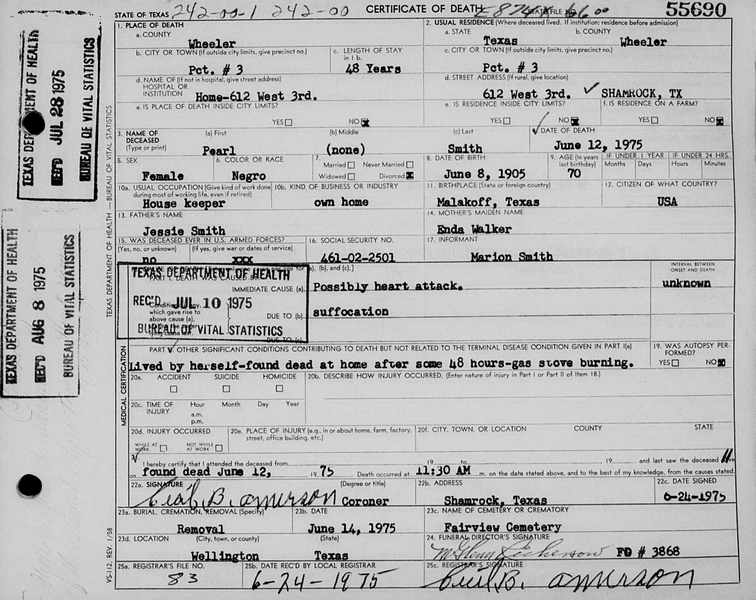 STATE OF TEXAS 242-00-1 242-00 CERTIFICATE OF DEATH 55690
1. PLACE OF DEATH
a. COUNTY
Wheeler
2. USUAL RESIDENCE (Where deceased lived. If institution: residence before admission)
a. STATE b. COUNTY
Texas Wheeler
b. CITY OR TOWN (If outside city limits, give precinct no.) c. LENGTH OF STAY in 1 b.
Pct. # 3 48 Years
c. CITY OR TOWN (If outside city limits, give precinct no.)
Pct. # 3
d. NAME OF (If not in hospital, give street address) HOSPITAL OR INSTITUTION
Home-612 West 3rd.
d. STREET ADDRESS (If rural, give location)
612 West 3rd. SHAMROCK, TX
e. IS PLACE OF DEATH INSIDE CITY LIMITS?
YES NO
e. IS RESIDENCE INSIDE CITY LIMITS?
YES NO
f. IS RESIDENCE ON A FARM?
YES NO
3. NAME OF DECEASED (Type or print) (a) First (b) Middle (c) Last
Pearl (none) Smith
4. DATE OF DEATH
June 12, 1975
5. SEX
Female
6. COLOR OR RACE
Negro
7. Married Never Married
Widowed Divorced
8. DATE OF BIRTH
June 8, 1905
9. AGE (In years last birthday) IF UNDER 1 YEAR IF UNDER 24 HRS.
Months Days Hours Min.
70
10a. USUAL OCCUPATION (Give kind of work done during most of working life, even if retired)
House keeper
10b. KIND OF BUSINESS OR INDUSTRY
own home
11. BIRTHPLACE (State or foreign country)
Malakoff, Texas
12. CITIZEN OF WHAT COUNTRY?
USA
13. FATHER'S NAME
Jessie Smith
14. MOTHER'S MAIDEN NAME
Enda Walker
15. WAS DECEASED EVER IN U.S. ARMED FORCES?
(Yes, no, or unknown) (If yes, give war or dates of service)
no xxx
16. SOCIAL SECURITY NO.
461-02-2501
17. INFORMANT
Marion Smith
TEXAS DEPARTMENT OF HEALTH
REC'D JUL 10 1975
BUREAU OF VITAL STATISTICS
(b), and (c).]
IMMEDIATE CAUSE (a) Possibly heart attack.
INTERVAL BETWEEN ONSET AND DEATH
unknown
which gave rise to above cause (a),
DUE TO (b) suffocation
DUE TO (c)
PART OTHER SIGNIFICANT CONDITIONS CONTRIBUTING TO DEATH BUT NOT RELATED TO THE TERMINAL DISEASE CONDITION GIVEN IN PART I(a)
Lived by herself-found dead at home after some 48 hours-gas stove burning.
19. WAS AUTOPSY PERFORMED?
YES NO
MEDICAL CERTIFICATION
20a. ACCIDENT SUICIDE HOMICIDE
20b. DESCRIBE HOW INJURY OCCURRED. (Enter nature of injury in Part I or Part II of item 18.)
20c. TIME OF INJURY Hour Month Day Year
a.m.
p.m.
20d. INJURY OCCURRED
WHILE AT WORK NOT WHILE AT WORK
20e. PLACE OF INJURY (e.g., in or about home, farm, factory, street, office building, etc.)
20f. CITY, TOWN, OR LOCATION COUNTY STATE
I hereby certify that I attended the deceased from 19 to 19 and last saw the deceased
on found dead June 12, 1975 Death occurred at 11:30 AM m. on the date stated above, and to the best of my knowledge, from the causes stated.
22a. SIGNATURE (Degree or title)
Cecil B. Amerson Coroner
22b. ADDRESS
Shamrock, Texas
22c. DATE SIGNED
6-24-1975
23a. BURIAL, CREMATION, REMOVAL (Specify)
Removal
23b. DATE
June 14, 1975
23c. NAME OF CEMETERY OR CREMATORY
Fairview Cemetery
23d. LOCATION (City, town, or county) (State)
Wellington Texas
24. FUNERAL DIRECTOR'S SIGNATURE
FD # 3868
25a. REGISTRAR'S FILE NO.
83
25b. DATE REC'D BY LOCAL REGISTRAR
6-24-1975
25c. REGISTRAR'S SIGNATURE
Cecil B. Amerson
TEXAS DEPARTMENT OF HEALTH
REC'D JUL 28 1975
BUREAU OF VITAL STATISTICS
TEXAS DEPARTMENT OF HEALTH
REC'D AUG 8 1975
BUREAU OF VITAL STATISTICS
TEXAS DEPARTMENT OF HEALTH—BUREAU OF VITAL STATISTICS
VS-112, REV. 1/58